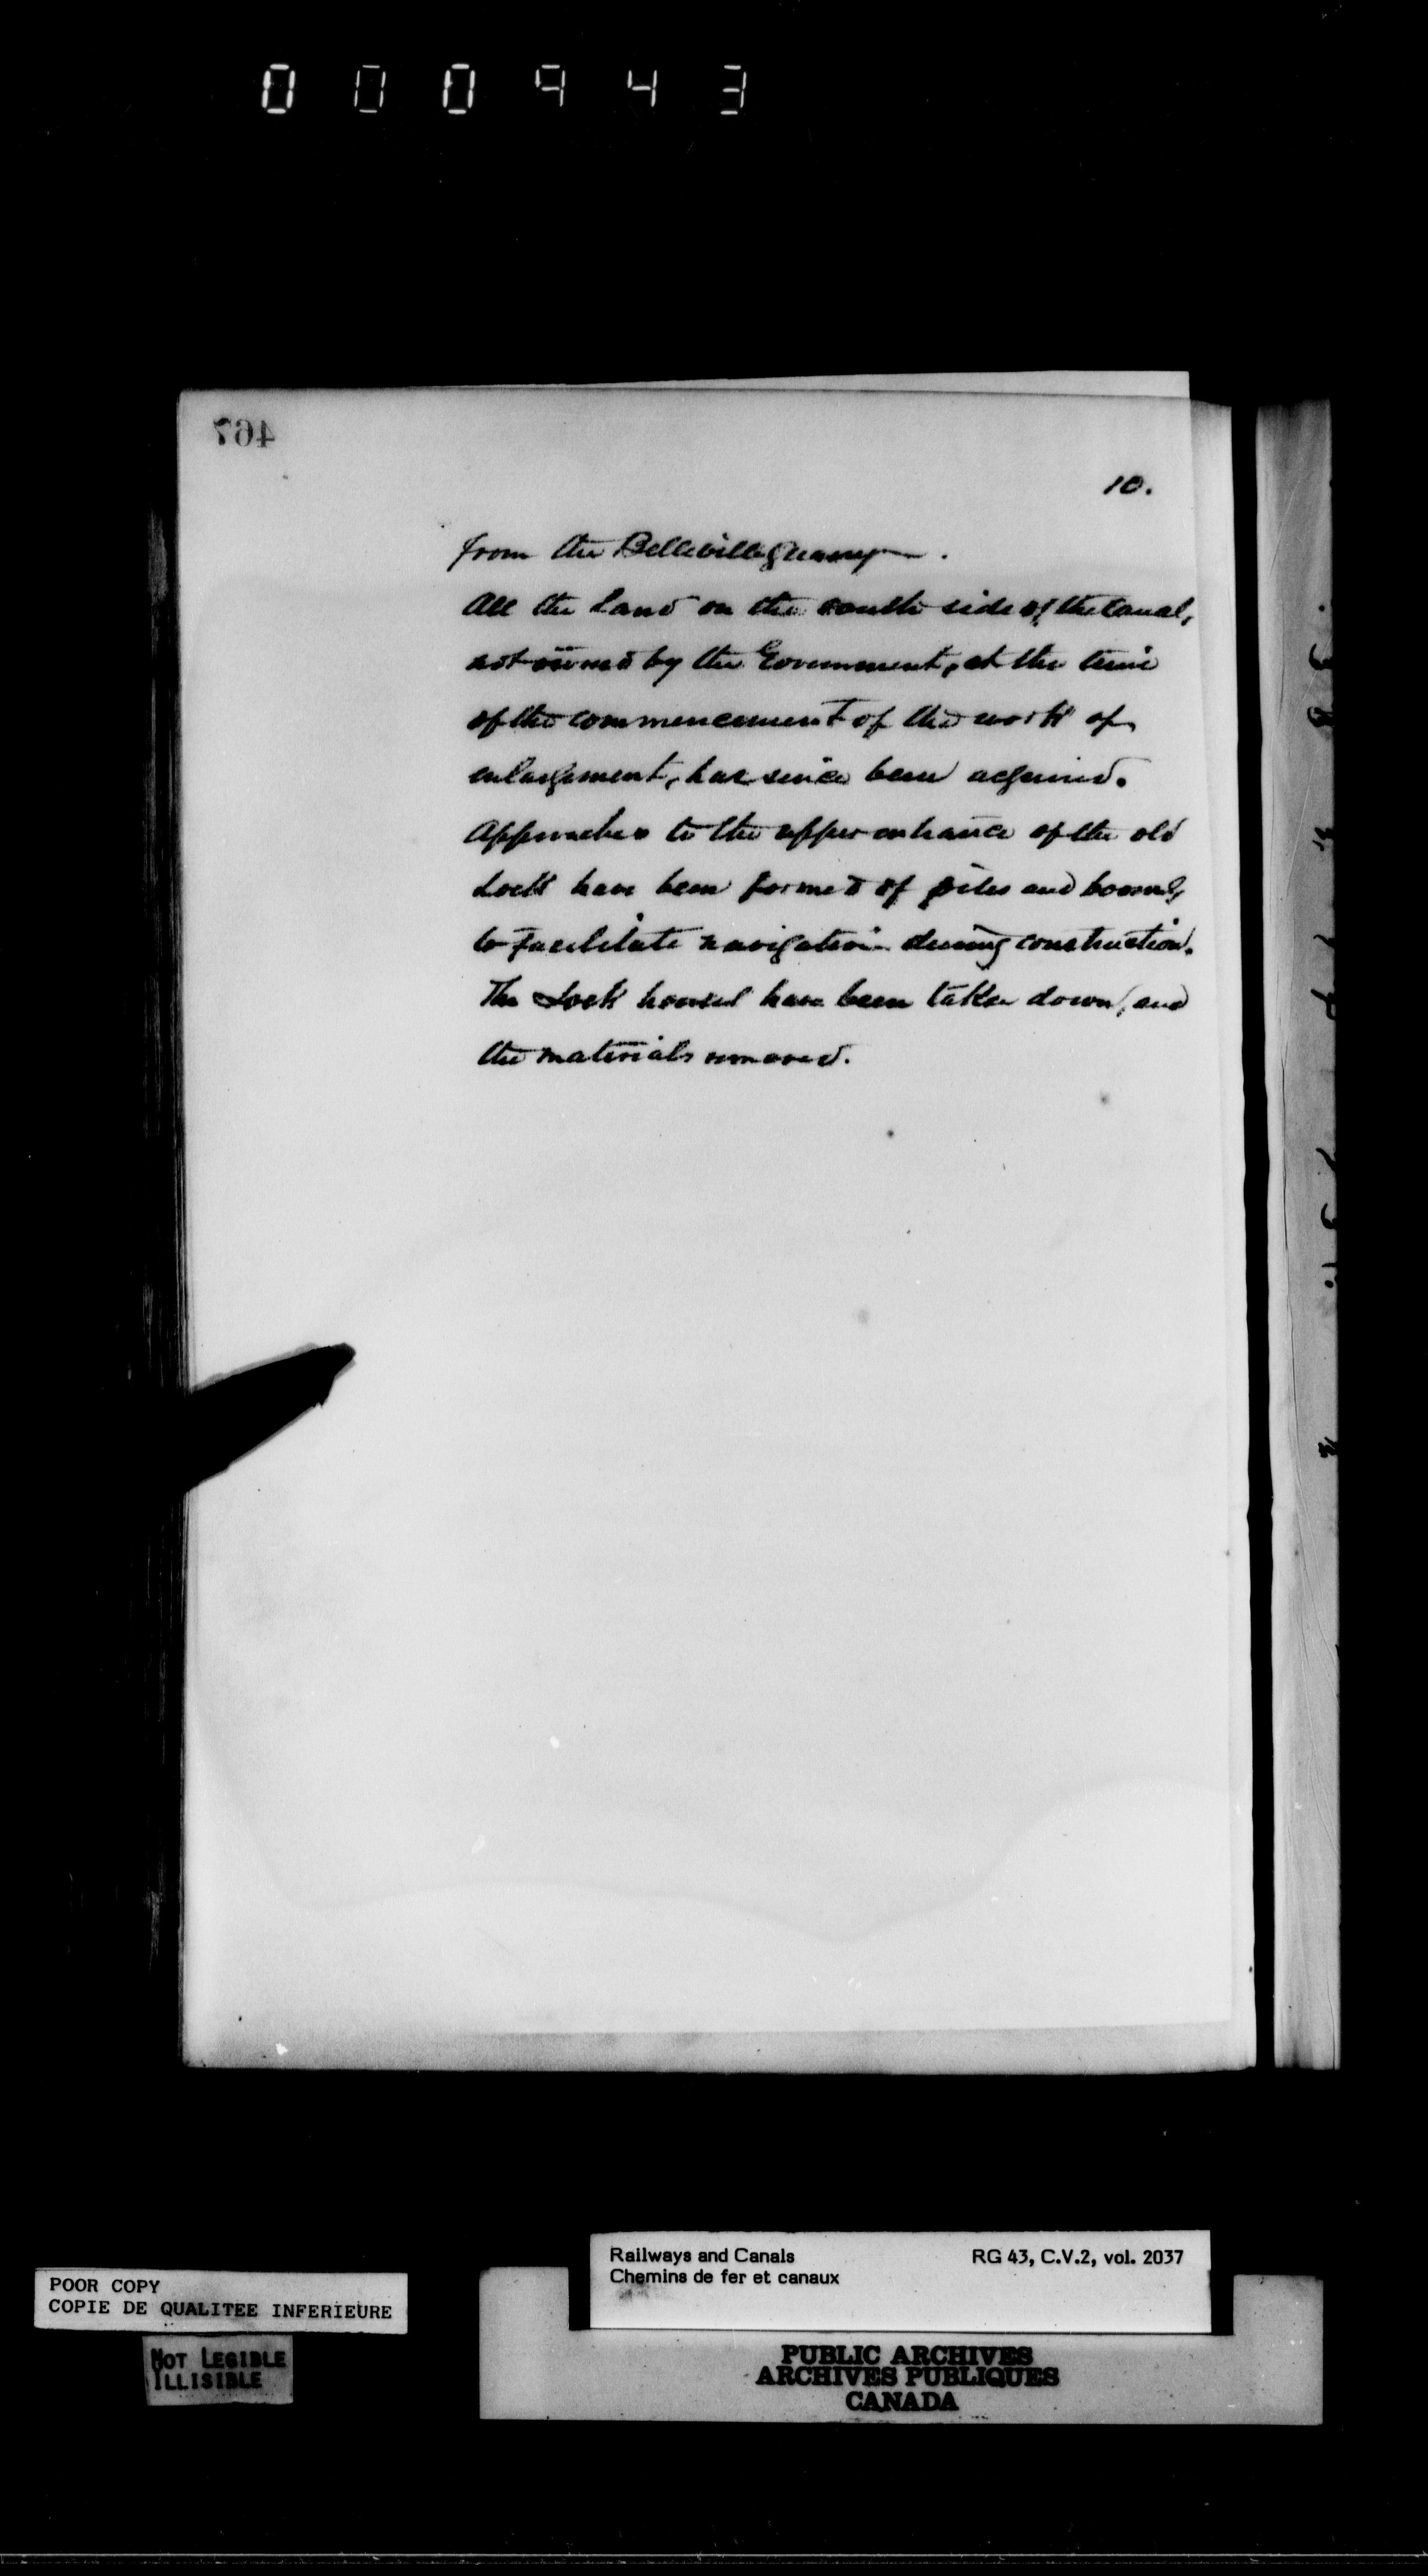 000943
467
10.
from the Belleville Quarry.
All the land on the south side of the Canal,
not owned by the Government, at the time
of the commencement of the work of
enlargement, has since been acquired.
Approaches to the upper entrance of the old
Lock have been formed of piles and booms,
to facilitate navigation during construction.
The Lock houses have been taken down, and
the materials removed.
Railways and Canals RG 43, C.V.2, vol. 2037
Chemins de fer et canaux
POOR COPY
COPIE DE QUALITEE INFERIEURE
NOT LEGIBLE
ILLISIBLE
PUBLIC ARCHIVES
ARCHIVES PUBLIQUES
CANADA